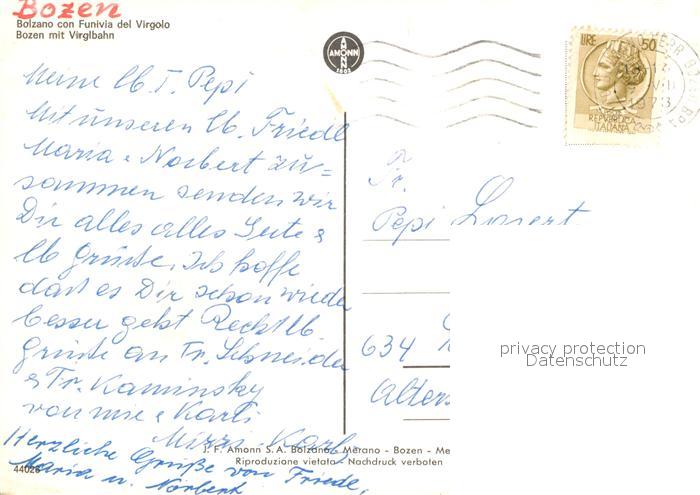 Bozen
Bolzano con Funivia del Virgolo
Bozen mit Virglbahn
AMONN
1802
LIRE 50
REPUBBLICA
ITALIANA
1973
Meine lb. T. Pepi
Mit unseren lb. Friedl
Maria & Norbert zu-
sammen senden wir
Dir alles alles Gute &
lb Grüße. Ich hoffe
dass es Dir schon wieder
besser geht Recht lb
Grüße an Fr. Schneider
& Fr. Kaminsky
von mir & Karli
Mizzi Karl
Herzliche Grüße von Friedl,
Maria u. Norbert
Fr.
Pepi
634
Alters
privacy protection
Datenschutz
J. F. Amonn S.A. Bolzano - Merano - Bozen - Me
Riproduzione vietata - Nachdruck verboten
44028